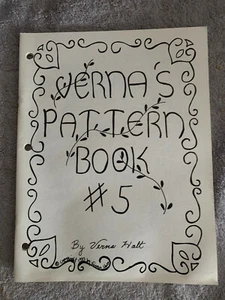 VERNA'S
PATTERN
BOOK
#5
By Verna Holt